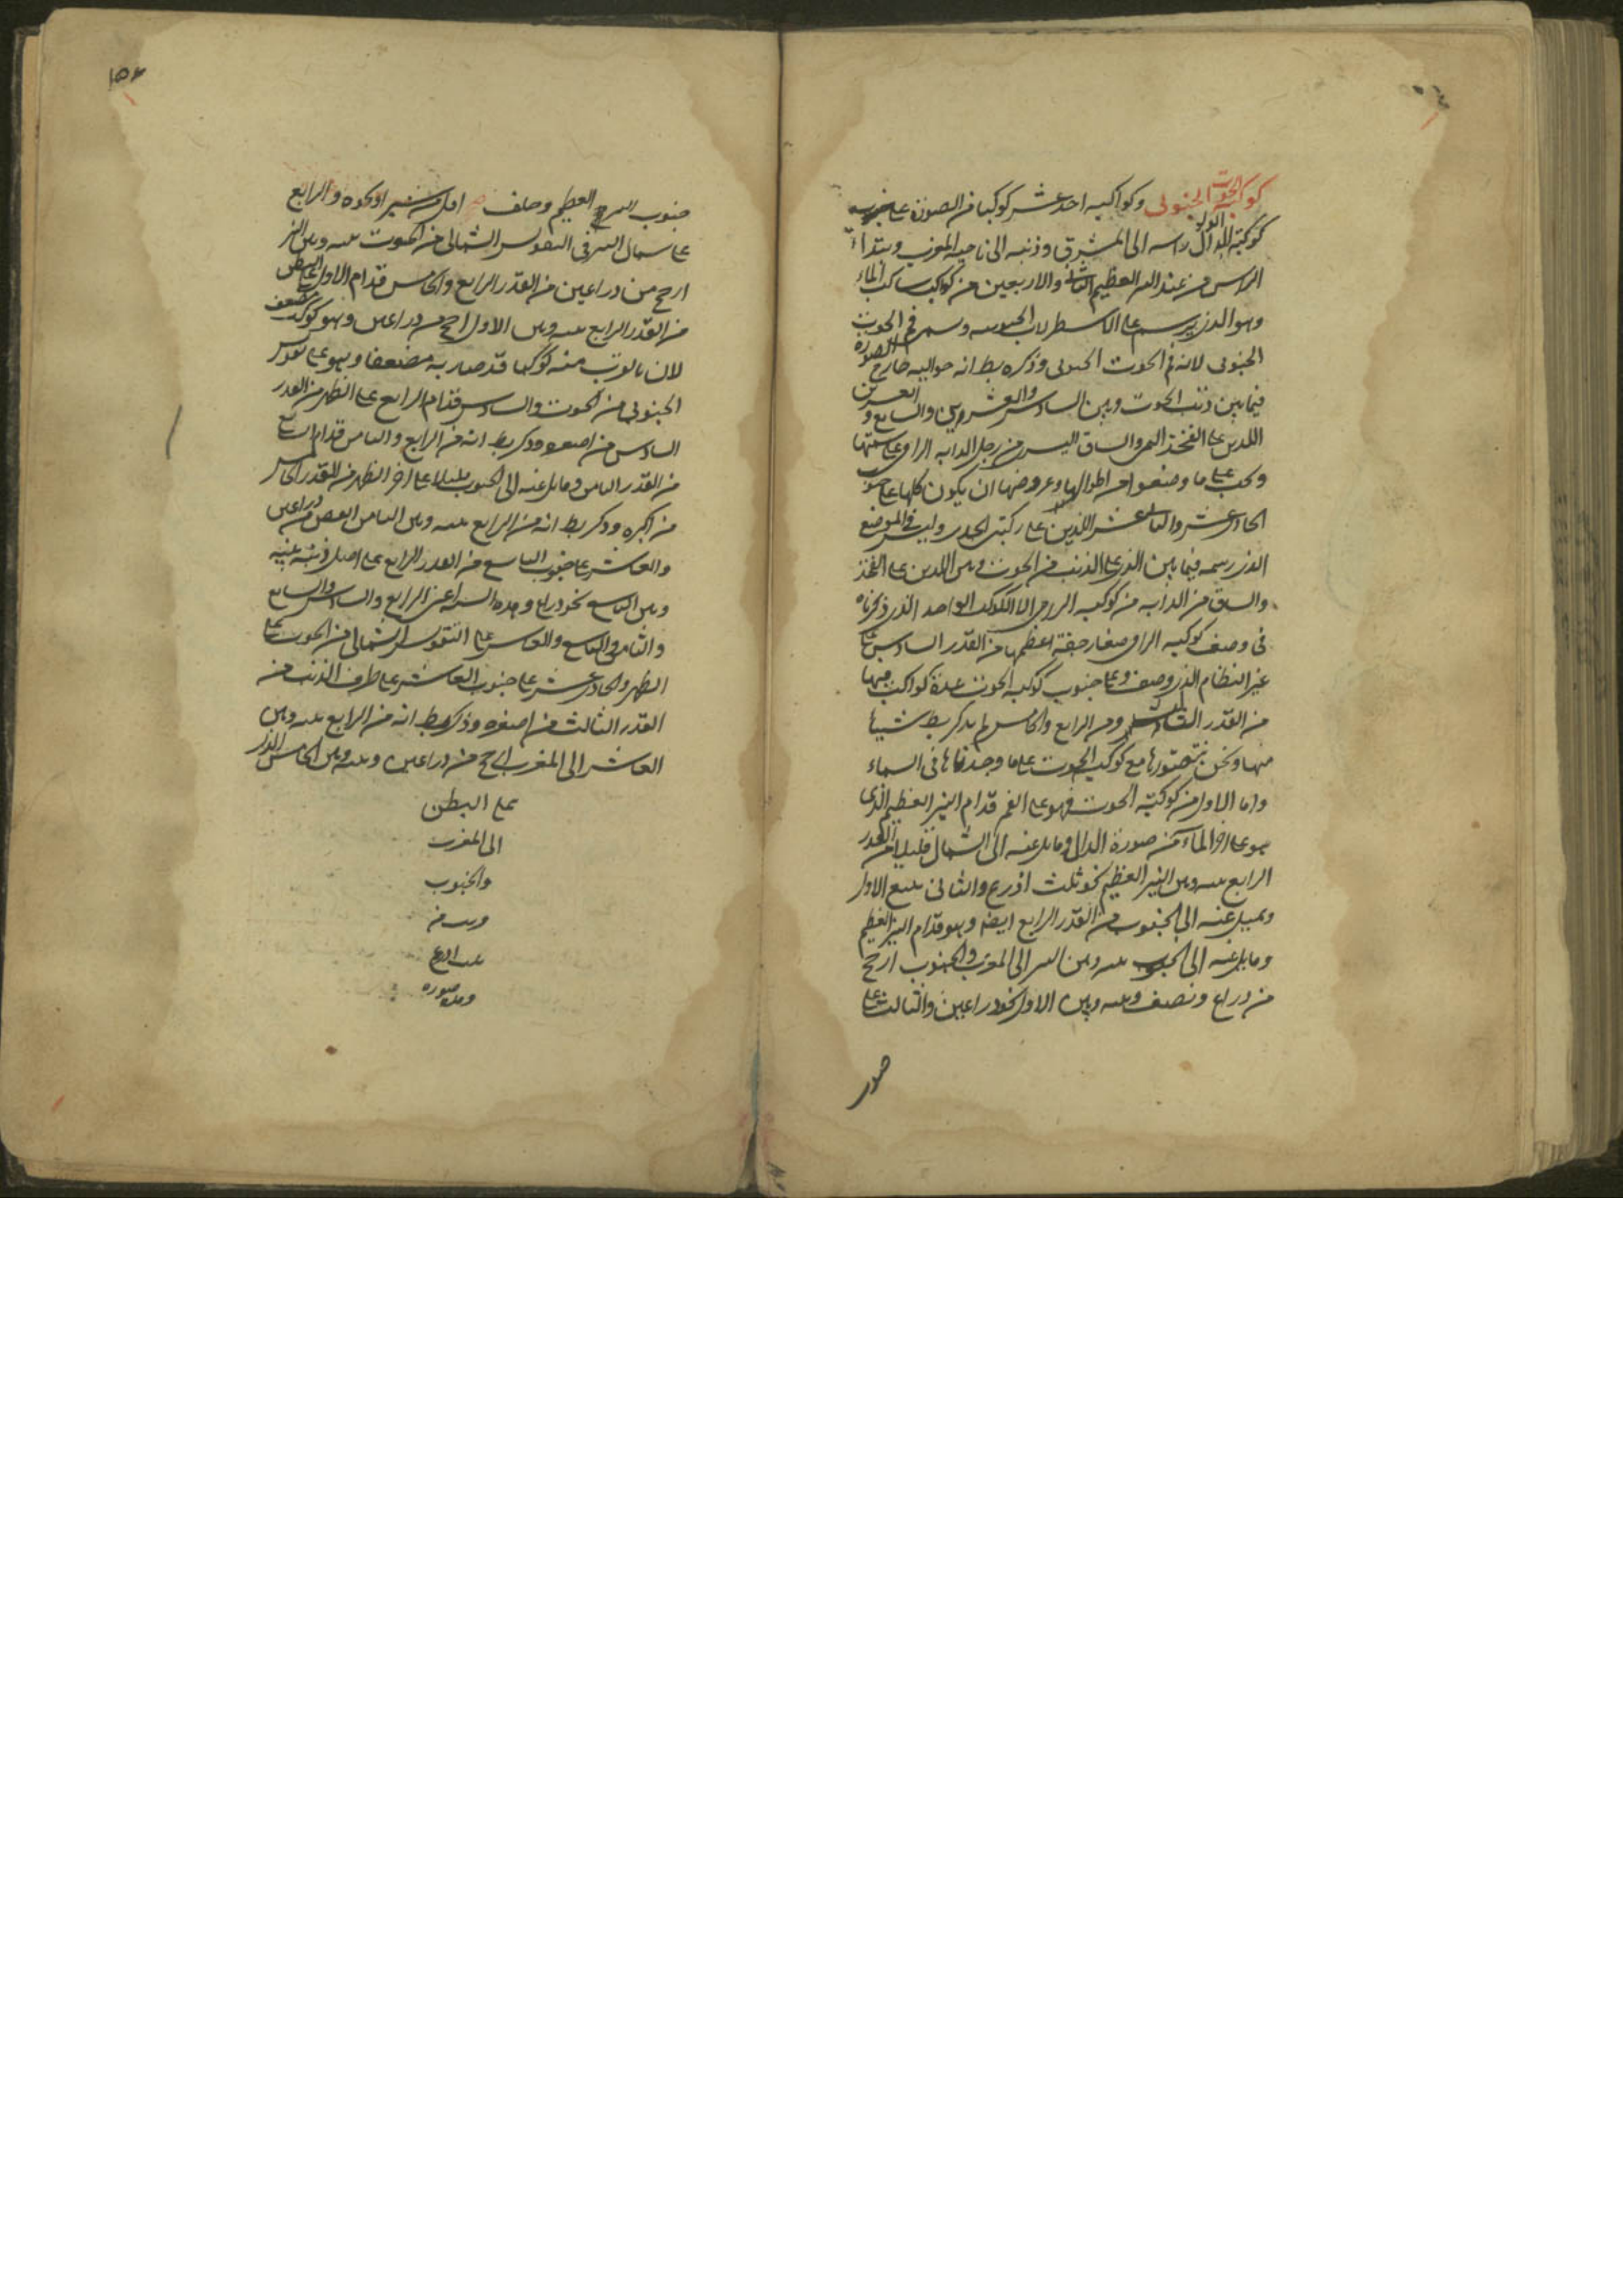 كوكبة الحوت الجنوبى وكواكبه احد عشر كوكبا من الصورة على جنوب
كوكبة الدالى راسه الى المشرق وذنبه الى ناحية المغرب ويبتدا
الراس من عند النير العظيم الثانى والاربعين من كواكب ساكب الماء
وهو الذى يرسم على الاسطرلاب الجنوبيه ويسمى فم الحوت
الجنوبى لانه فم الحوت الجنوبى وذكره بط انه حواليه خارج الصورة
فيما بين ذنب الحوت وبين السادس والعشرين والسابع والعشرين
اللذين على الفخذ اليمنى والساق اليسرى من رجل الدابه الرامى على سمتها
ويجب على ما وصفوا من اطوالها وعروضها ان يكون كلها على جنوب
الحادى عشر والثانى عشر اللذين على ركبتى الجدى وليس فى الموضع
الذى رسمه فيما بين الذى على الذنب من الحوت وبين اللذين على الفخذ
والساق من الدابه من كوكبة الرامى الا الكوكب الواحد الذى ذكرناه
فى وصف كوكبة الرامى صغار خفية اعظمها من القدر السادس على
غير النظام الذى وصف وعلى جنوب كوكبة الحوت عدة كواكب فيها
من القدر الثالث ومن الرابع والخامس لم يذكر بط شيئا
منها ونحن نتصورها مع كوكبة الحوت على ما وجدناها فى السماء
واما الاول من كوكبة الحوت فهو على الفم قدام النير العظيم الذى
هو على اخر الماء من صورة الدالى ومايل عنه الى الشمال قليلا من القدر
الرابع بينه وبين النير العظيم نحو ثلث اذرع والثانى يتبع الاول
ويميل عنه الى الجنوب من القدر الرابع ايضا وهو قدام النير العظيم
ومايل عنه الى الجنوب بينه وبين النير الى المغرب والجنوب ارجح
من ذراع ونصف وبينه وبين الاول نحو ذراعين والثالث على
جنوب النير العظيم وخلف اقل من شبر او نحوه والرابع
على شمال النير فى التقويس الشمالى من الحوت بينه وبين النير
ارجح من ذراعين من القدر الرابع والخامس قدام الاول على البطن
من القدر الرابع بينه وبين الاول ارجح من ذراعين وهو كوكب مضعف
لان بالقرب منه كوكبا قد صار به مضعفا وهو على تقويس
الجنوبى من الحوت والسادس قدام الرابع على الظهر من القدر
السادس من اصغره وذكر بط انه من الرابع والثامن قدام السابع
من القدر الثامن ومايل عنه الى الجنوب قليلا على اخر الظهر من القدر الخامس
من اكبره وذكر بط انه من الرابع بينه وبين الثامن انقص من ذراعين
والعاشر على جنوب التاسع من القدر الرابع على اصل ذنبه بينه
وبين التاسع نحو ذراع وهذه الستة اعنى الرابع والسادس والسابع
والثامن والتاسع والعاشر على التقويس الشمالى من الحوت على
الظهر والحادى عشر على جنوب العاشر على طرف الذنب من
القدر الثالث من اصغره وذكر بط انه من الرابع بينه وبين
العاشر الى المغرب ارجح من ذراعين وبينه وبين الخامس الذى
على البطن
الى المغرب
والجنوب
وصورته
صور